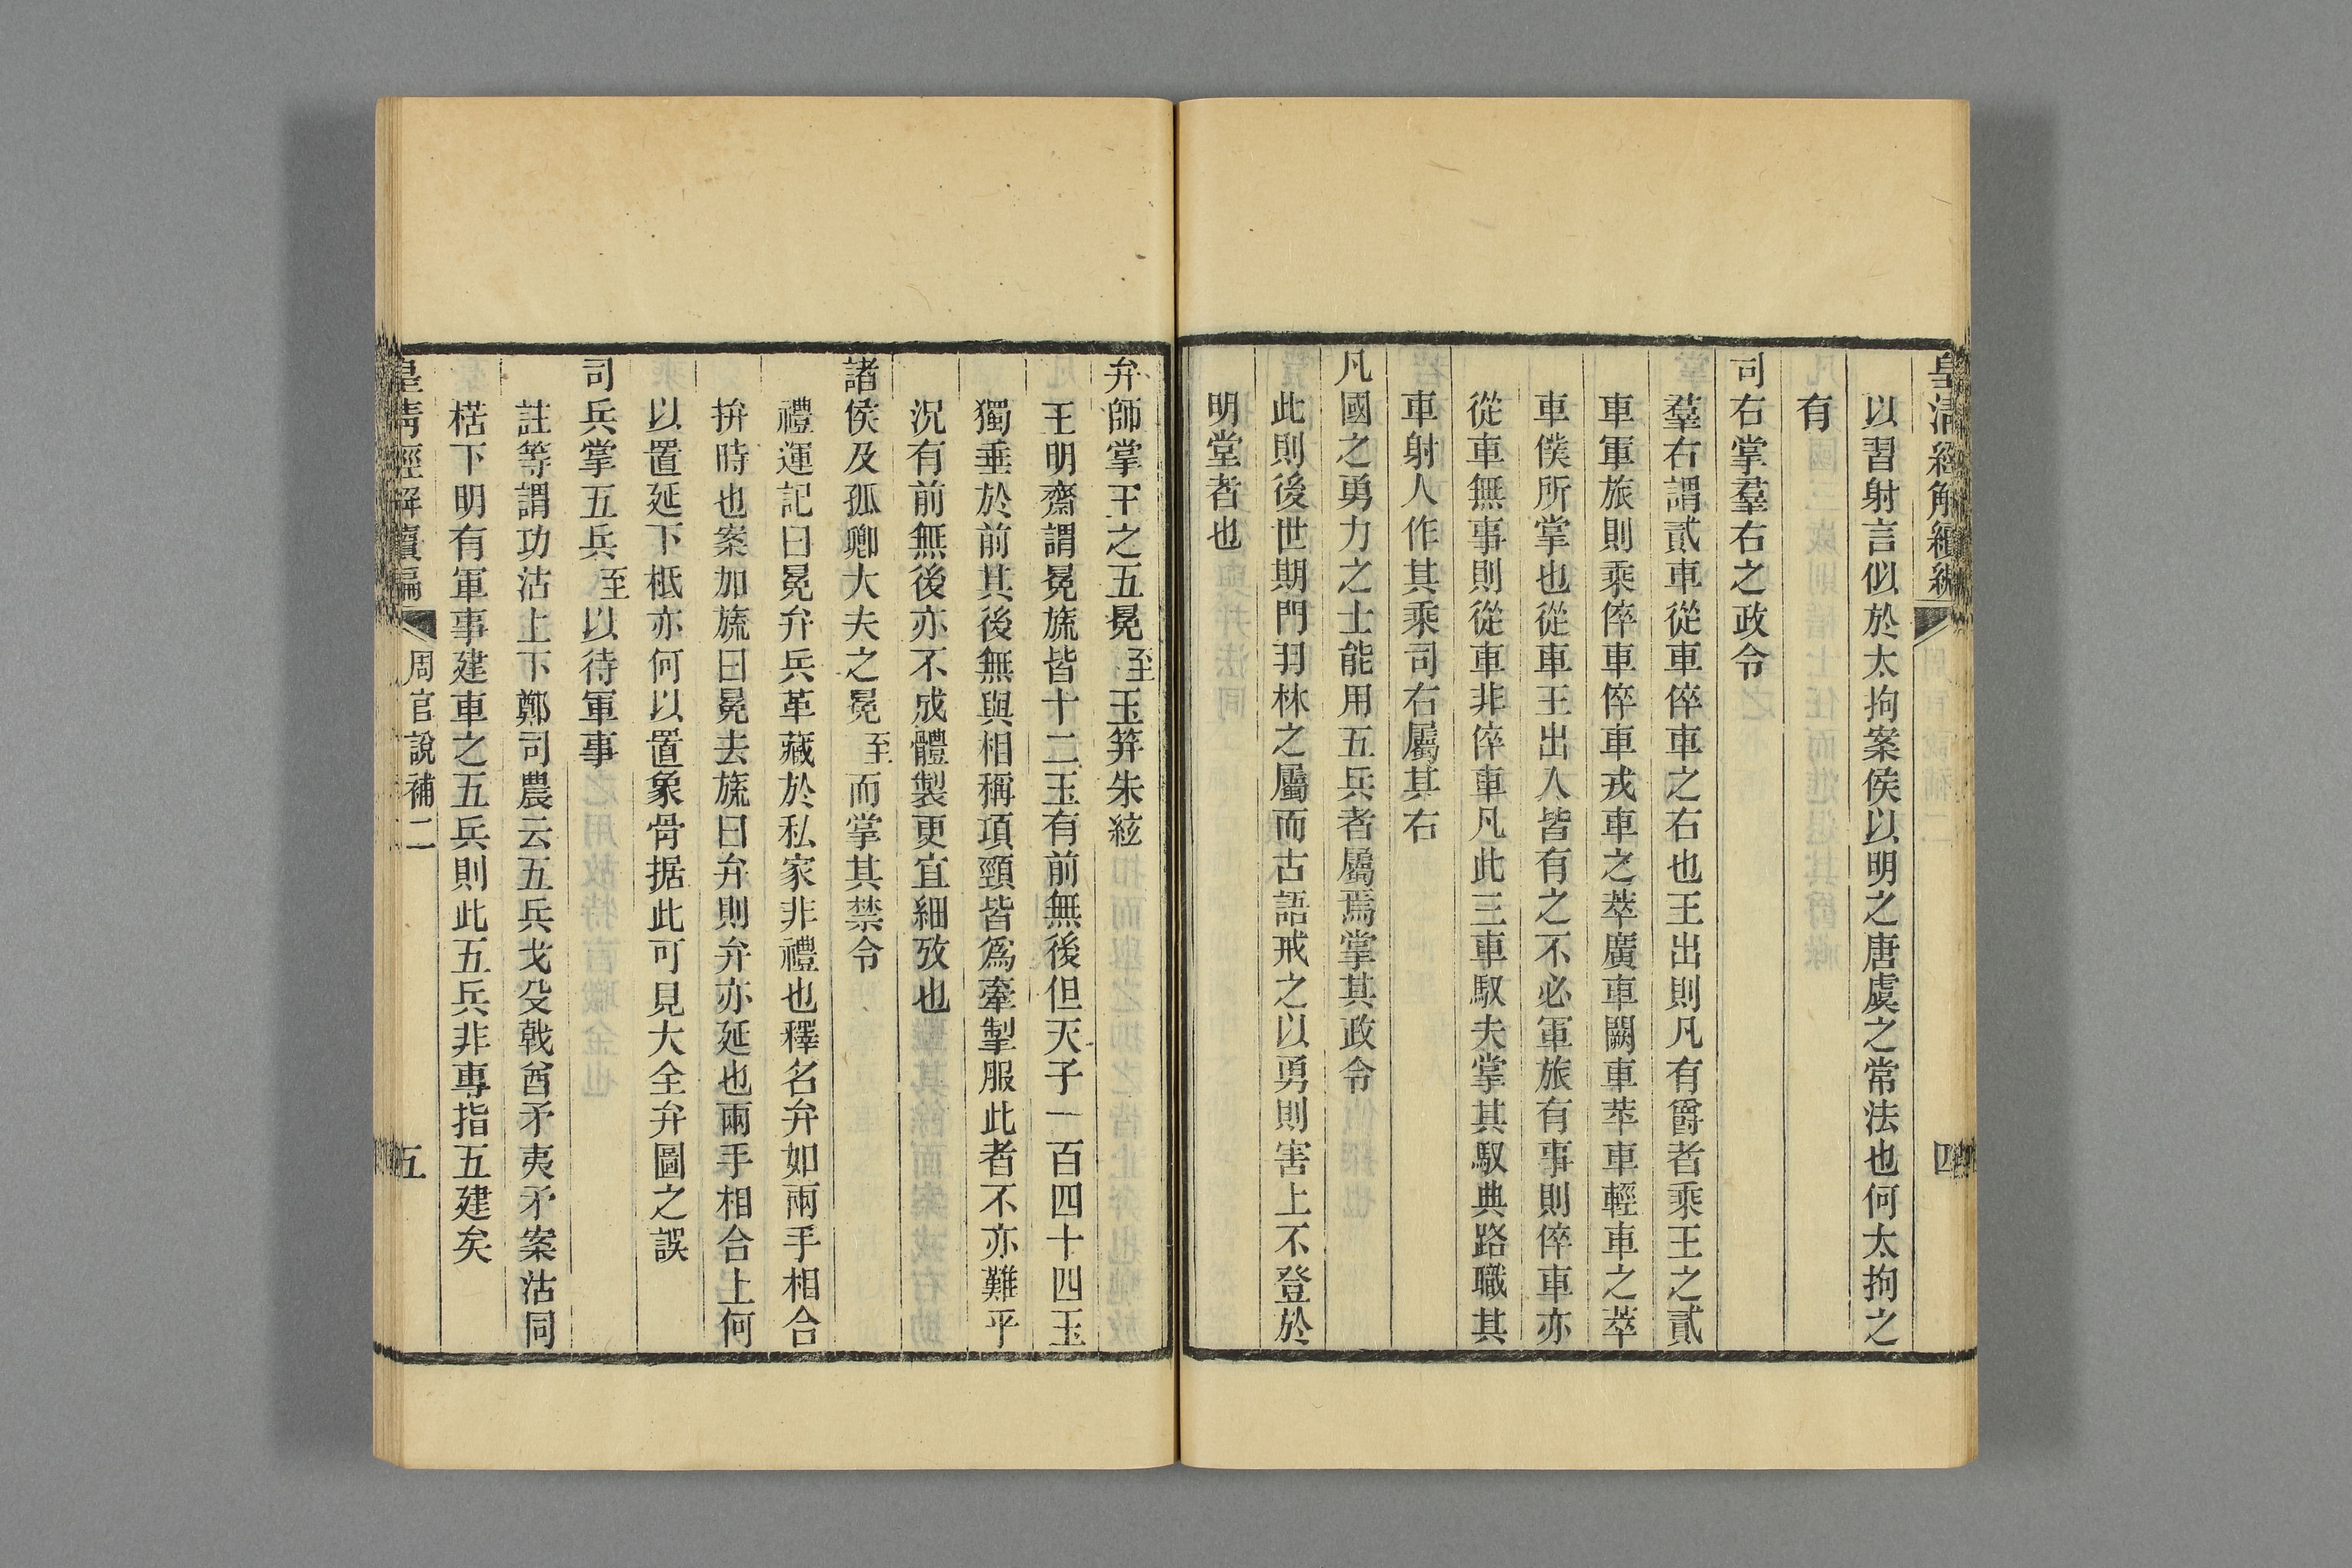 皇清經解續編
四
以習射言似於太拘案侯以明之唐虞之常法也何太拘之
有
司右掌羣右之政令
羣右謂貳車從車倅車之右也王出則凡有爵者乘王之貳
車軍旅則乘倅車倅車戎車之萃廣車闕車苹車輕車之萃
車僕所掌也從車王出入皆有之不必軍旅有事則倅車亦
從車無事則從車非倅車凡此三車馭夫掌其馭典路職其
車射人作其乘司右屬其右
凡國之勇力之士能用五兵者屬焉掌其政令
此則後世期門羽林之屬而古語戒之以勇則害上不登於
明堂者也
弁師掌王之五冕至玉笄朱紘
王明齋謂冕旒皆十二玉有前無後但天子一百四十四玉
獨垂於前其後無與相稱項頸皆爲牽掣服此者不亦難乎
况有前無後亦不成體製更宜細攷也
諸侯及孤卿大夫之冕至而掌其禁令
禮運記曰冕弁兵革藏於私家非禮也釋名弁如兩手相合
拚時也案加旒曰冕去旒曰弁則弁亦延也兩手相合上何
以置延下柢亦何以置象骨据此可見大全弁圖之誤
司兵掌五兵至以待軍事
註等謂功沽上下鄭司農云五兵戈殳戟酋矛夷矛案沽同
楛下明有軍事建車之五兵則此五兵非專指五建矣
皇清經解續編
周官說補二
五